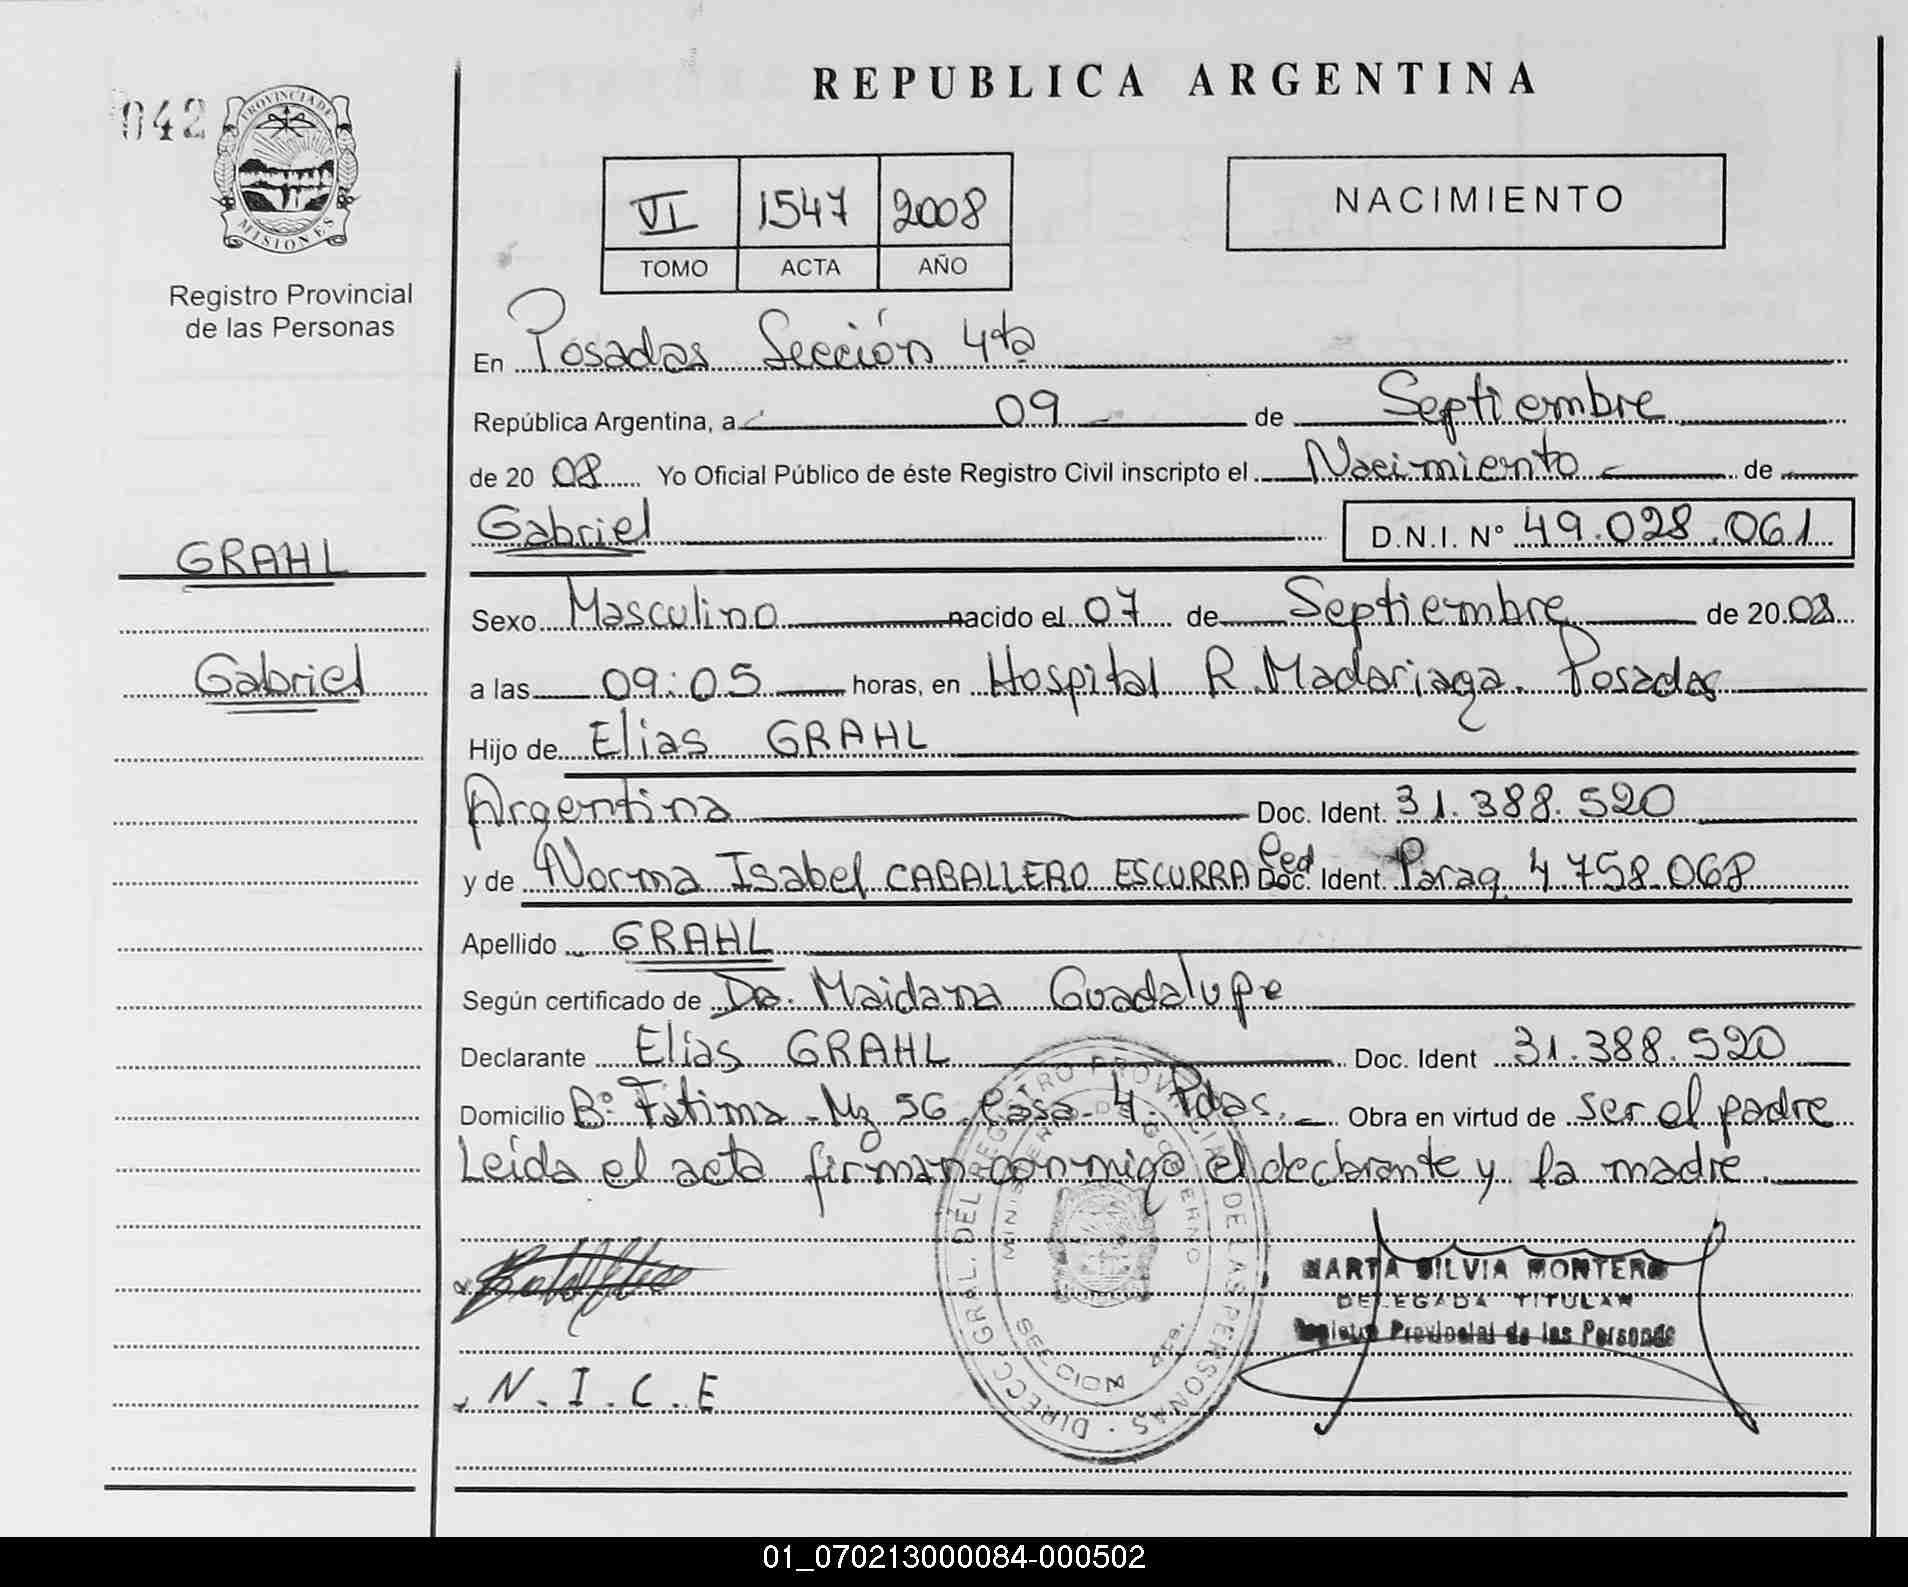 REPUBLICA ARGENTINA
042
PROVINCIA DE
MISIONES
Registro Provincial
de las Personas
VI 1547 2008
TOMO ACTA AÑO
NACIMIENTO
En Posadas Sección 4ta
República Argentina, a 09 de Septiembre
de 20 08 Yo Oficial Público de éste Registro Civil inscripto el Nacimiento de
Gabriel D.N.I. N° 49.028.061
GRAHL
Gabriel
Sexo Masculino nacido el 07 de Septiembre de 20 08
a las 09:05 horas, en Hospital R. Madariaga. Posadas
Hijo de Elias GRAHL
Argentina Doc. Ident. 31.388.520
y de Norma Isabel CABALLERO ESCURRA Ced Doc. Ident. Parag. 4.758.068
Apellido GRAHL
Según certificado de Dra. Maidana Guadalupe
Declarante Elias GRAHL Doc. Ident 31.388.520
Domicilio B° Fátima - Mz 56 Casa 4. Pdas. Obra en virtud de ser el padre
Leída el acta firman conmigo el declarante y la madre.
DIRECC. GRAL. DEL REGISTRO PROVINCIAL DE LAS PERSONAS
MINISTERIO DE GOBIERNO
SECCION 4ta.
MARTA SILVIA MONTERO
DELEGADA TITULAR
Registro Provincial de las Personas
N.I.C.E
01_070213000084-000502